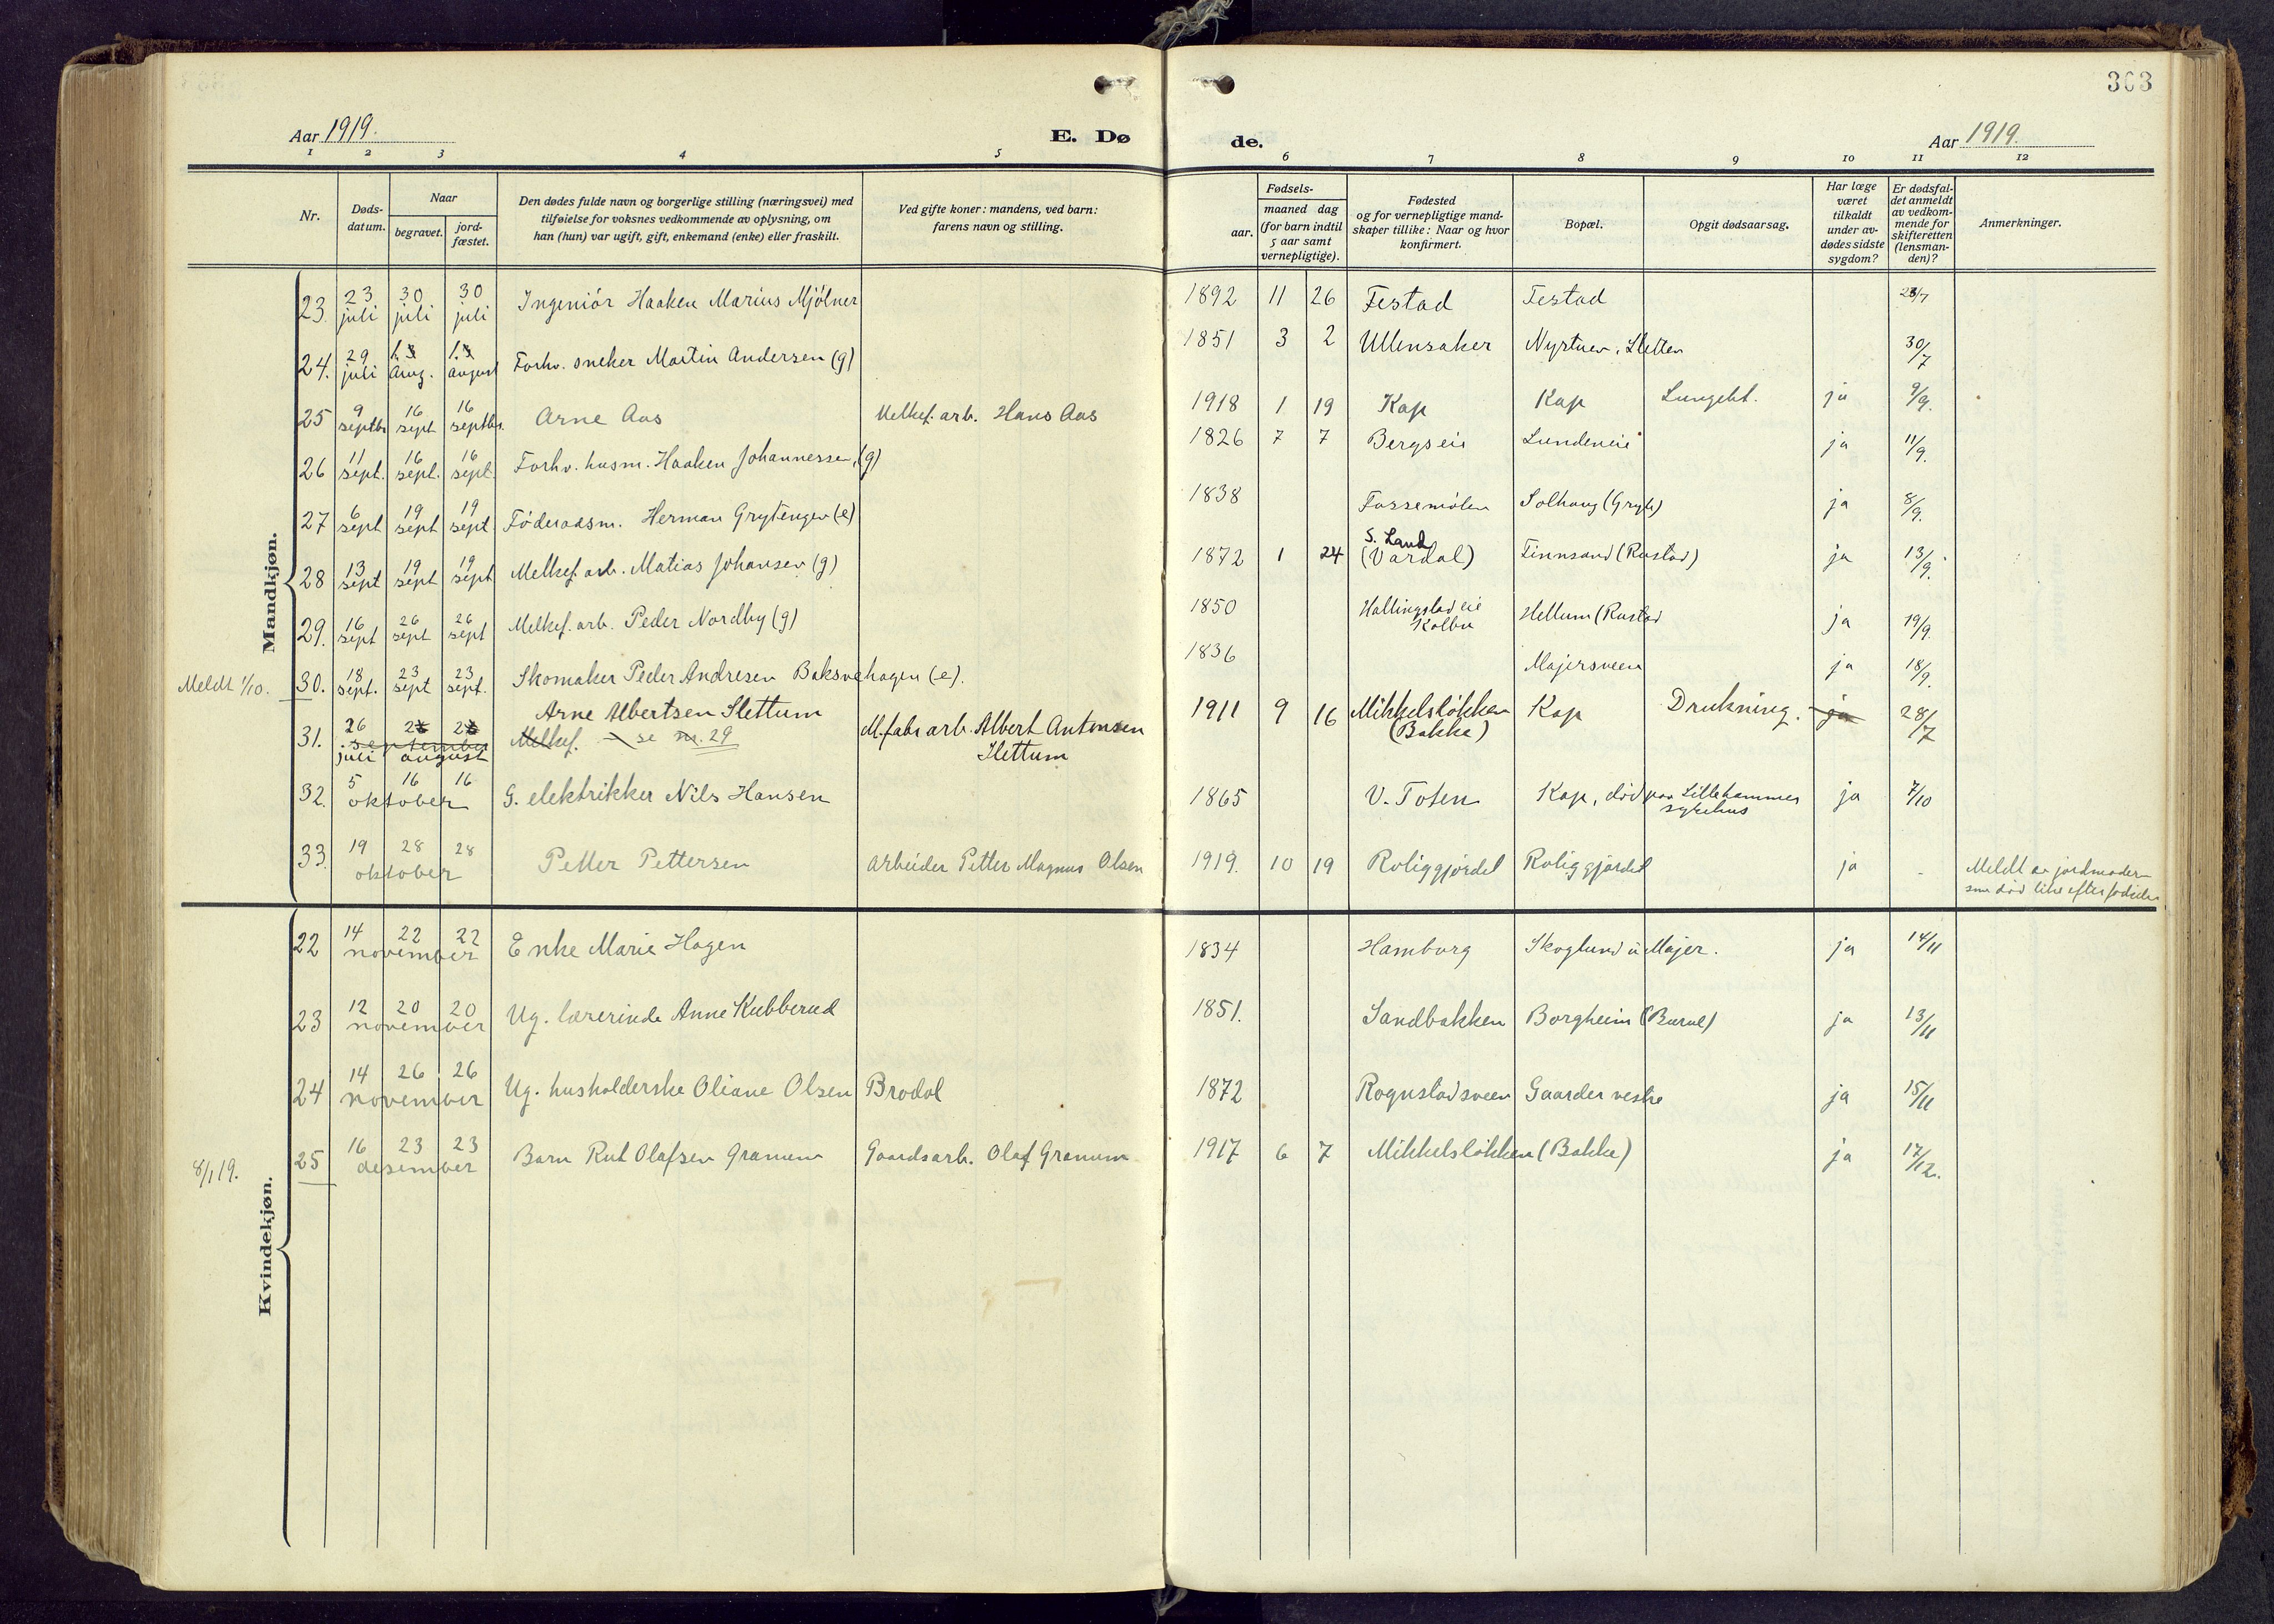 363
Aar 1919.
E. Døde.
Aar 1919.
1 2 3 4 5 6 7 8 9 10 11 12
Nr.
Dødsdatum.
Naar
begravet.
jordfæstet.
Den dødes fulde navn og borgerlige stilling (næringsvei) med
tilføielse for voksnes vedkommende av oplysning, om
han (hun) var ugift, gift, enkemand (enke) eller fraskilt.
Ved gifte koner: mandens, ved barn:
farens navn og stilling.
Fødsels-
aar.
maaned dag
(for barn indtil
5 aar samt
vernepligtige).
Fødested
og for vernepligtige mand-
skaper tillike: Naar og hvor
konfirmert.
Bopæl.
Opgit dødsaarsag.
Har læge
været
tilkaldt
under av-
dødes sidste
sygdom?
Er dødsfal-
det anmeldt
av vedkom-
mende for
skifteretten
(lensman-
den)?
Anmerkninger.
Mandkjøn.
23. 23 juli 30 juli 30 juli Ingeniør Haaken Marius Mjølner 1892 11 26 Festad Festad
24. 29 juli 1. Aug. 1. august Forhv. sneker Martin Andersen (g) 1851 3 2 Ullensaker Nystuen, 30/7
25 9 septbr 16 sept 16 septbr. Arne Aas Melkef. arb. Hans Aas 1918 1 19 Kap Kap Lungebet. ja 9/9.
26 11 sept. 16 sept. 16 sept. Forhv. husm. Haaken Johannessen, (g) 1826 7 7 Bergseie Lundeneie ja 11/9.
27 6 sept 19 sept 19 sept Føderaasm. Herman Grytengen (e) 1838 Fossemølen Solhaug (Gryte) ja 8/9.
28 13 sept 19 sept 19 sept Melkef. arb. Matias Johansen (g) 1872 1 24 S. Land (Vardal) Finnsand (Rustad) ja 13/9.
29. 16 sept 26 sept 26 sept Melkef. arb. Peder Nordby (g) 1850 Hallingstad eie Kolbu Hellum (Rustad ja 19/9.
Meldt 1/10. 30. 18 sept. 23 sept 23 sept. Skomaker Peder Andresen Baksvehagen (e). 1836 Majersveen ja 18/9.
31. 26 september juli 2 2 august Arne Albertsen Slettum
Melkef. – se nr. 29 M.fabr arb. Albert Antonsen Slettum 1911 9 16 Mikkelsløkken (Bakke) Kap Drukning. ja 28/7
32. 5 16 16 oktober G. elektrikker Nils Hansen 1865 V. Toten Kap, død paa Lillehammer sykehus ja 7/10
33. 19 28 28 oktober Petter Pettersen Arbeider Petter Magnus Olsen 1919. 10 19 Roliggjordet Roliggjordet ja - Meldt av jordmoder
som død like efter fødselen
Kvindekjøn.
22 14 22 22 november Enke Marie Hagen 1834 Hamborg Skoglund u Majer. ja 14/11
23 12 20 20 november Ug. lærerinde Anne Kubberud 1851. Sandbakken Borgheim ja 13/11
24 14 26 26 november Ug. husholderske Oliane Olsen Brodal 1872 Rognstadsveen Gaarder vestre ja 15/11
8/1 19. 25 16 23 23 desember Barn Rut Olafsen Granum Gaardsarb. Olaf Granum 1917 6 7 Mikkelsløkken (Bakke) ja 17/12.